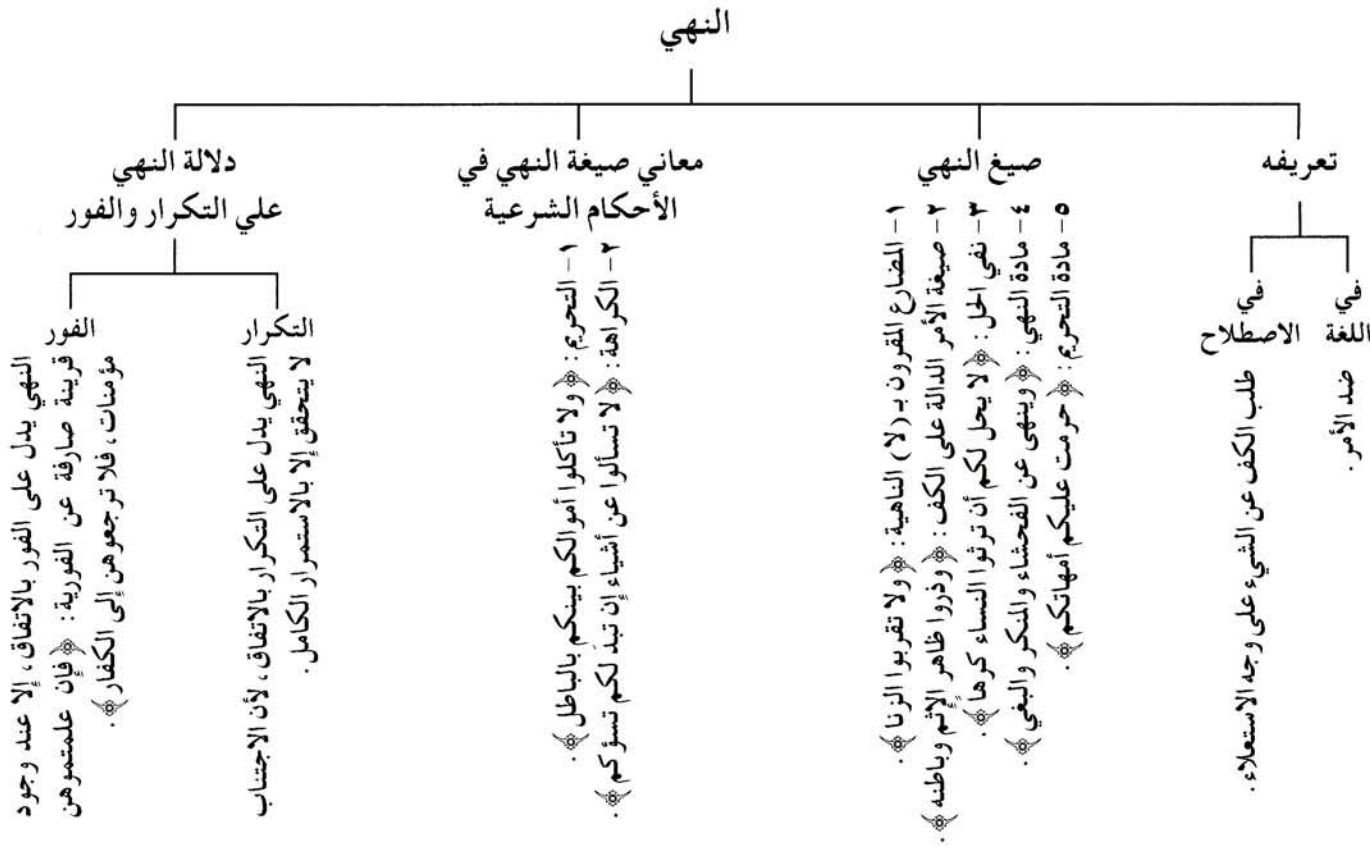 النهي
تعريفه
في
اللغة
ضد الأمر.
في
الاصطلاح
طلب الكف عن الشيء على وجه الاستعلاء.
صيغ النهي
١ - المضارع المقرون بـ (لا) الناهية: ﴿ولا تقربوا الزنا﴾.
٢ - صيغة الأمر الدالة على الكف: ﴿وذروا ظاهر الإثم وباطنه﴾.
٣ - نفي الحل: ﴿لا يحل لكم أن ترثوا النساء كرهاً﴾.
٤ - مادة النهي: ﴿وينهى عن الفحشاء والمنكر والبغي﴾.
٥ - مادة التحريم: ﴿حرمت عليكم أمهاتكم﴾.
معاني صيغة النهي في
الأحكام الشرعية
١ - التحريم: ﴿ولا تأكلوا أموالكم بينكم بالباطل﴾.
٢ - الكراهة: ﴿لا تسألوا عن أشياء إن تبدَ لكم تسؤكم﴾.
دلالة النهي
علي التكرار والفور
التكرار
النهي يدل على التكرار بالاتفاق، لأن الاجتناب
لا يتحقق إلا بالاستمرار الكامل.
الفور
النهي يدل على الفور بالاتفاق، إلا عند وجود
قرينة صارفة عن الفورية: ﴿فإن علمتموهن
مؤمنات، فلا ترجعوهن إلى الكفار﴾.